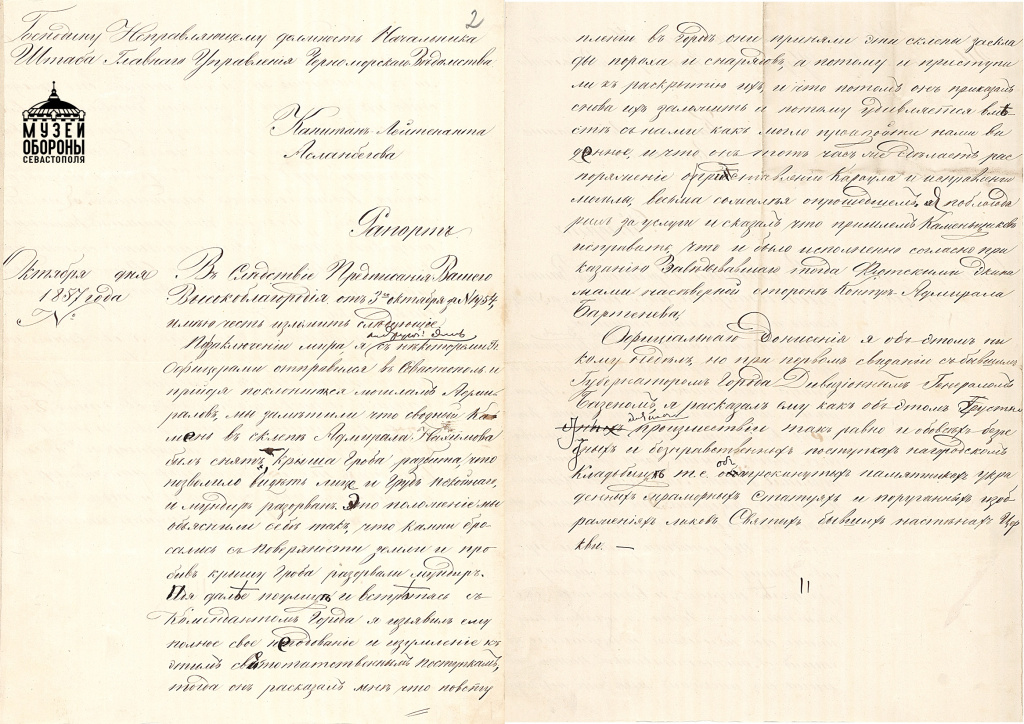 2
Господину Исправляющему должность Начальника
Штаба Главнаго Управленія Черноморскаго Вѣдомства
МУЗЕЙ
ОБОРОНЫ
СЕВАСТОПОЛЯ
Капитанъ Лейтенанта
Асланбегова
Рапортъ
Октября дня
1857 года
№
Въ слѣдствіе Предписанія Вашего
Высокоблагородія отъ 3го октября № 454,
имѣю честь изложить слѣдующіе
По заключеніи мира, я съ нѣкоторыми Гг.
Офицерами отправился въ Севастополь и
прийдя поклониться могиламъ Адми-
раловъ, мы замѣтили что сводный Ка-
мень въ склепѣ Адмирала Нахимова
былъ снятъ, Крыша Гроба разбита, что
позволило видѣть лице и Грудь покойнаго,
и мундиръ разорванъ. Это положеніе мы
объяснили себѣ такъ, что камни бро-
сались съ поверхности земли и про-
бивъ крышу Гроба разорвали мундиръ.
Идя далѣе по улицѣ и встрѣтясь съ
Комендантомъ Города я изъявилъ ему
полное свое негодованіе и изумленіе къ
этимъ святотатственнымъ поступкамъ,
тогда онъ разсказалъ мнѣ что по всту
пленіи въ Городъ они приняли эти склепа за скла
ды пороха и снарядовъ, а потому и приступи
ли къ раскрытію ихъ, и что потомъ онъ приказалъ
снова ихъ заложить и потому удивляется вмѣ
стѣ съ нами какъ могло произойти нами ви
денное, и что онъ тотъ часъ же сдѣлаетъ рас
поряженіе о приставленіи Караула и исправленіи
могилъ, весьма сожалѣя о прошедшемъ. Я поблагода
рилъ за услуги и сказалъ что пришлемъ Каменьщиковъ
исправить, что и было исполнено согласно при
казанію Завѣдывавшаго тогда Флотскими Экипа
жами на сѣверной сторонѣ Контръ Адмирала
Бартенева.
Официальнаго Донесенія я объ этомъ ни
кому не дѣлалъ, но при первомъ свиданіи съ бывшимъ
Губернаторомъ Города Дивизіоннымъ Генераломъ
я разсказалъ ему какъ объ этомъ Грустномъ
происшествіи такъ равно и обо всѣхъ
и безнравственныхъ поступкахъ на городскомъ
Кладбищѣ т.е. опрокинутыхъ памятникахъ укра
денныхъ мраморныхъ Статуяхъ и поруганныхъ изоб
раженіяхъ ликовъ Святыхъ бывшихъ на стѣнахъ Цер
кви. —